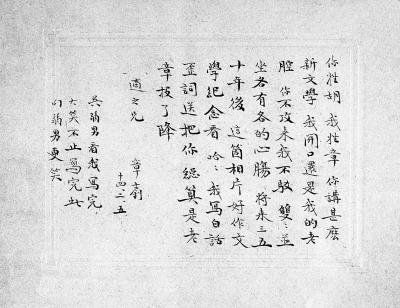 你姓胡 我姓章 你講甚麼
新文學 我開口還是我的老
腔 你不攻來我不駁 雙〻並
坐各有各的心腸 將來三五
十年後 這箇相片好作文
學紀念看 哈〻 我寫白話
歪詞送把你 總算是老
章投了降
適之兄
章
十四、二、五
吳弱男看我寫完
大笑不止寫完此
行弱男更笑